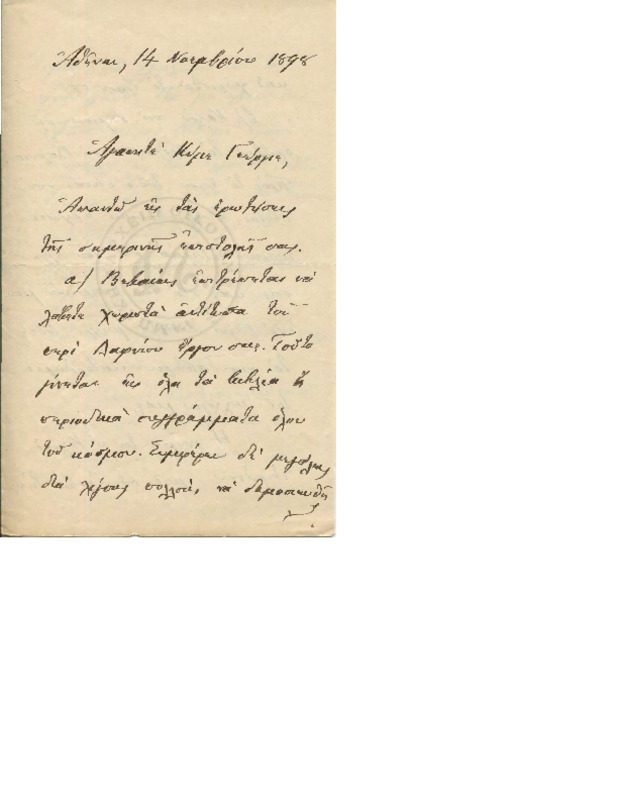 Ἀθῆναι, 14 Νοεμβρίου 1898
Ἀγαπητέ Κύριε Γεώργιε,
Ἀπαντῶ εἰς τὰς ἐρωτήσεις
τῆς σημερινῆς ἐπιστολῆς σας.
α) Βεβαίως ἐπιτρέπεται νὰ
λάβετε χωριστὰ ἀντίτυπα τοῦ
περὶ Δαφνίου ἔργου σας. Τοῦτο
γίνεται εἰς ὅλα τὰ βιβλία ἢ
περιοδικὰ συγγράμματα ὅλου
τοῦ κόσμου. Συμφέρει δὲ μεγάλως
διὰ λόγους πολλοὺς, νὰ δημοσιευθῇ